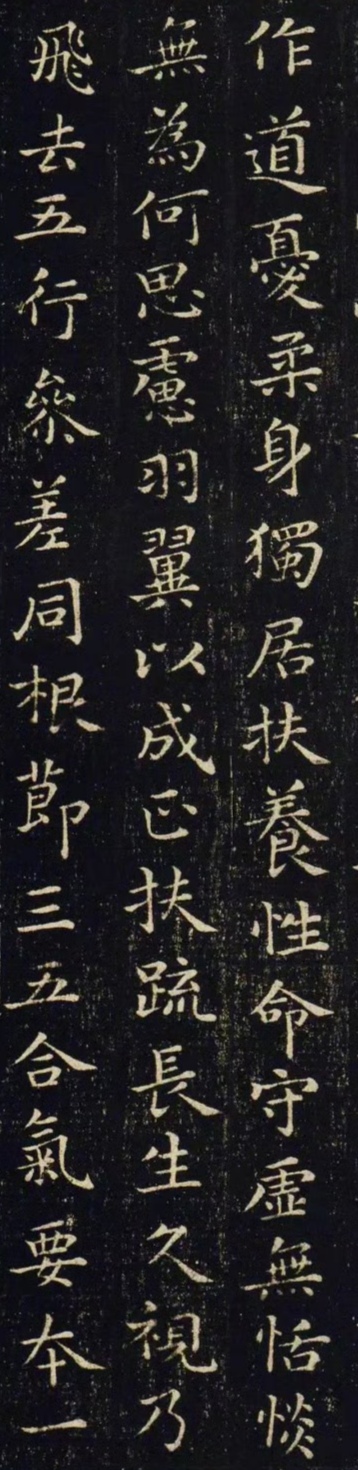 作道憂柔身獨居扶養性命守虛無恬惔
無為何思慮羽翼以成正扶疏長生久視乃
飛去五行參差同根節三五合氣要本一